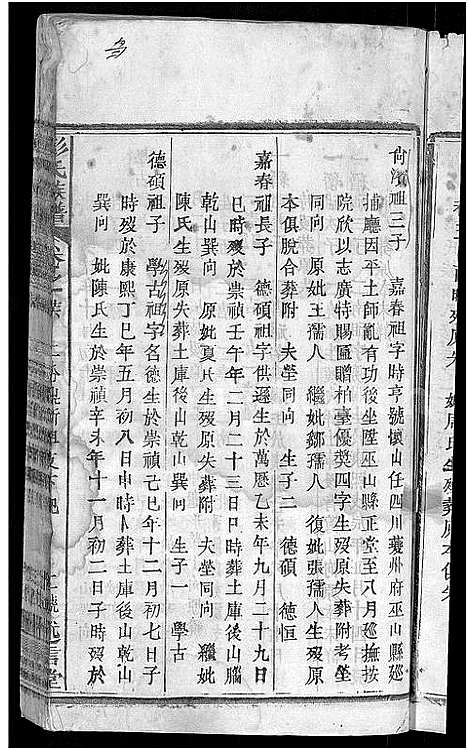 尙濱祖三子　嘉春祖字時亨號懷山任四川夔州府巫山縣廵
捕廳因平土師亂有功後坐陞巫山縣正堂至八月廵撫按
院欣以志廣特賜匾贈柏臺優奬四字生歿原失葬附考塋
同向　原妣王孺人　繼妣鄒孺人　復妣張孺人生歿原
本俱脫合葬附　夫塋同向　生子二　德碩　德恒
嘉春祖長子　德碩祖字供遜生於萬歷乙未年九月二十九日
巳時歿於崇禎壬午年二月二十三日巳時葬土庫後山腦
乾山巽向　原妣夏氏生歿原失葬附　夫塋同向　繼妣
陳氏生歿原失葬土庫後山乾山巽向　生子一　學古
德碩祖子　學古祖字名德生於崇禎己巳年十二月初七日子
時歿於康熙丁巳年五月初八日申時卜葬土庫後山乾山
巽向　妣陳氏生於崇禎辛未年十一月初二日子時歿於
彭氏族譜